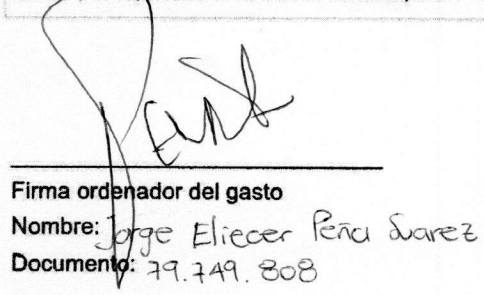 Firma ordenador del gasto
Nombre: Jorge Eliecer Peña Suarez
Documento: 79.749.808